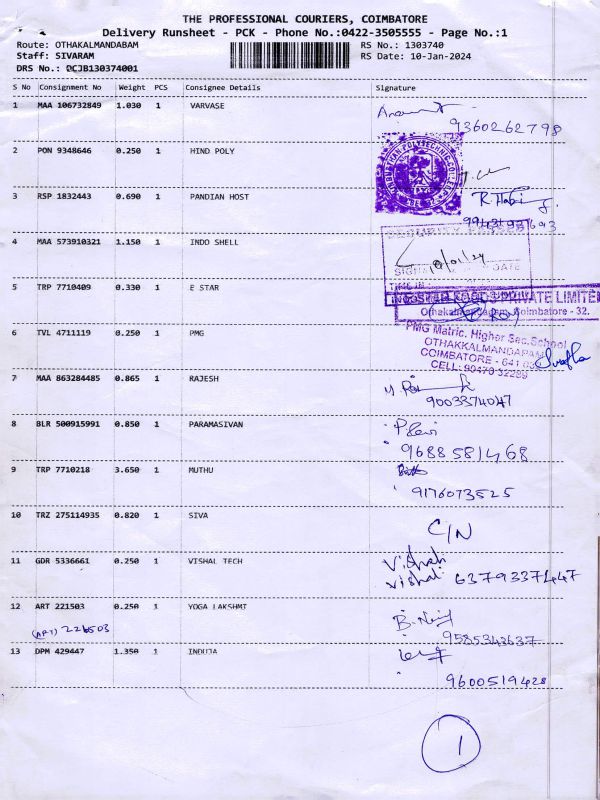 THE PROFESSIONAL COURIERS, COIMBATORE
Delivery Runsheet - PCK - Phone No.:0422-3505555 - Page No.:1
Route: OTHAKALMANDABAM RS No.: 1303740
Staff: SIVARAM RS Date: 10-Jan-2024
DRS No.: DCJB130374001
S No Consignment No Weight PCS Consignee Details Signature
1 MAA 106732849 1.030 1 VARVASE
9360262798
2 PON 9348646 0.250 1 HIND POLY
3 RSP 1832443 0.690 1 PANDIAN HOST
4 MAA 573910321 1.150 1 INDO SHELL
SECURITY
10/01/24
SIGN DATE
TIME IN
5 TRP 7710409 0.330 1 E STAR
PRIVATE LIMITED
Othakalmandapam, Coimbatore - 32.
6 TVL 4711119 0.250 1 PMG
PMG Matric. Higher Sec.School
OTHAKKALMANDAPAM
COIMBATORE - 641 032
CELL: 90470 32289
7 MAA 863284485 0.865 1 RAJESH
9003374047
8 BLR 500915991 0.850 1 PARAMASIVAN
9688581468
9 TRP 7710218 3.650 1 MUTHU
9176073525
10 TRZ 275114935 0.820 1 SIVA
C/N
11 GDR 5336661 0.250 1 VISHAL TECH
Vishal
Vishal 6379337447
12 ART 221503 0.250 1 YOGA LAKSHMI
(ART) 221503
9585343637
13 DPM 429447 1.350 1 INDUJA
9600519428
1